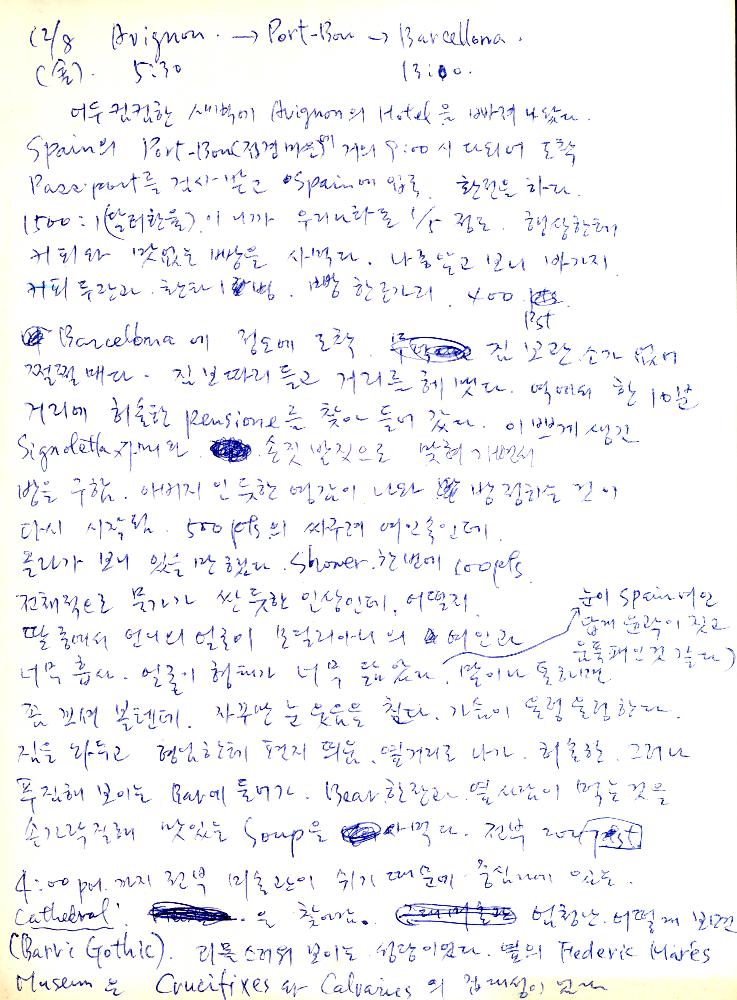 12/8 Avignon. → Port-Bou → Barcellona.
5:30 13:00.
어두컴컴한 새벽에 Avignon의 Hotel을 빠져 나왔다.
Spain의 Port-Bou(접경마을)에 거의 9:00시 다되어 도착
Passport를 검사받고 Spain에 입국, 환전을 하다.
1500:1(달러환율)이니까 우리나라로 1/5 정도. 행상한테
커피와 맛없는 빵을 사먹다. 나중알고 보니 바가지.
커피 두잔과 환타 1병, 빵 한조가리. 400 pts
Pst
Barcellona에 정오에 도착. 짐 보관소가 없어
쩔쩔매다. 짐보따리 들고 거리를 헤맸다. 역에서 한 10분
거리에 허술한 pensione를 찾아 들어 갔다. 이쁘게 생긴
손짓 발짓으로
방을 구함. 아버지인 듯한 영감이 나와 방 정하는 것이
다시 시작됨. 500 pts의 싸구려 여인숙인데.
올라가 보니 있을만 했다. Shower 한번에 100pts.
전체적으로 물가가 싼 듯한 인상인데, 어떨지
딸 중에서 언니의 얼굴이 모딜리아니의 여인과
너무 흡사. 얼굴이 형태가 너무 닮았다.
눈이 Spain 여인
답게 윤곽이 짓고
움푹 패인것 같다)
말이나 통하면
좀 꼬셔 볼텐데. 자꾸만 눈웃음을 친다. 가슴이 울렁울렁한다.
짐을 놔두고 형님한테 편지 띄움. 옆거리로 나가. 허술한, 그러나
푸짐해 보이는 Bar에 들어가. Bear 한잔과 옆사람이 먹는것을
손가락질해 맛있는 Soup을 사먹다. 전부
4:00 pm.까지 전부 미술관이 쉬기 때문에 중심가에 있는
Cathedral 을 찾아감. 엄청난. 어떻게 보면
(Barri Gothic). 리륵스러워 보이는 성당이었다. 옆의 Federic Marés
Museum는 Crucifixes와 Calvaries의 집대성이